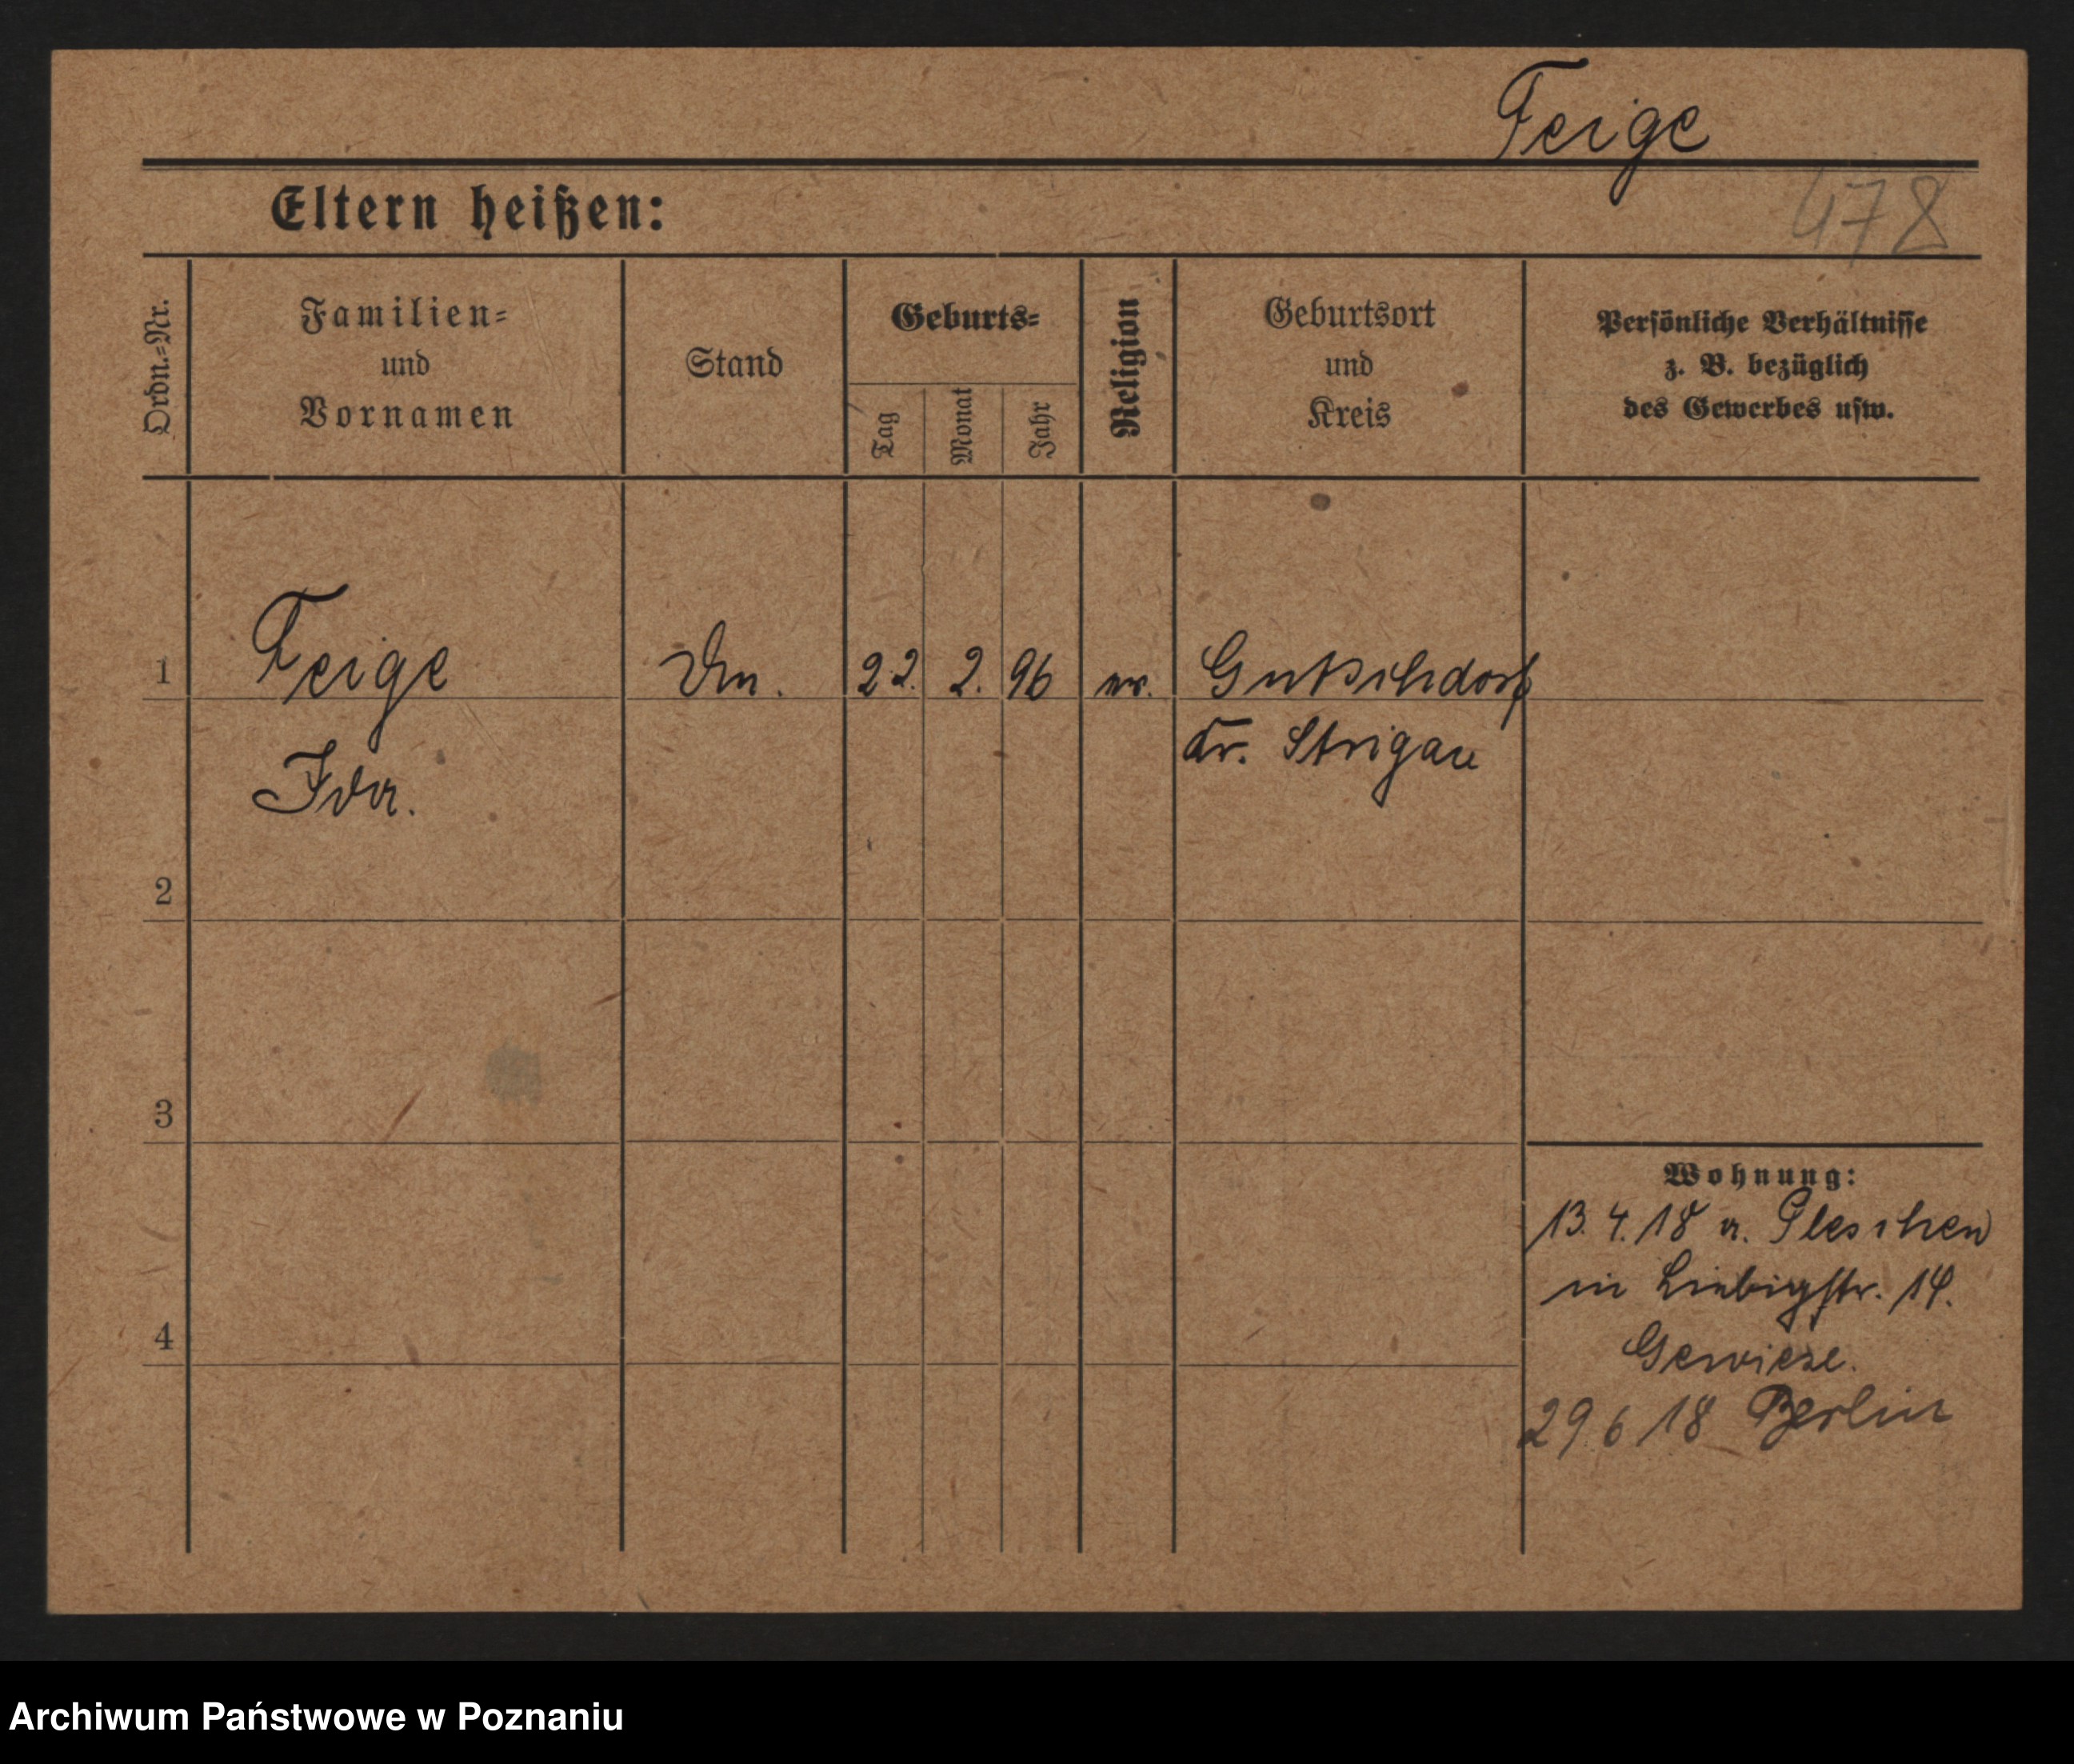 Feige
478
Eltern heißen:
Ordn.=Nr.
Familien=
und
Vornamen
Stand
Geburts=
Tag
Monat
Jahr
Religion
Geburtsort
und
Kreis
Persönliche Verhältnisse
z. B. bezüglich
des Gewerbes usw.
1
Feige
22. 2. 96 ev. Gutschdorf
Kr. Strigau
Ida.
2
3
Wohnung:
13.4.18 a. Pleschen
in Liebigstr. 14.
4
Gewiese.
29 6 18 Berlin
Archiwum Państwowe w Poznaniu